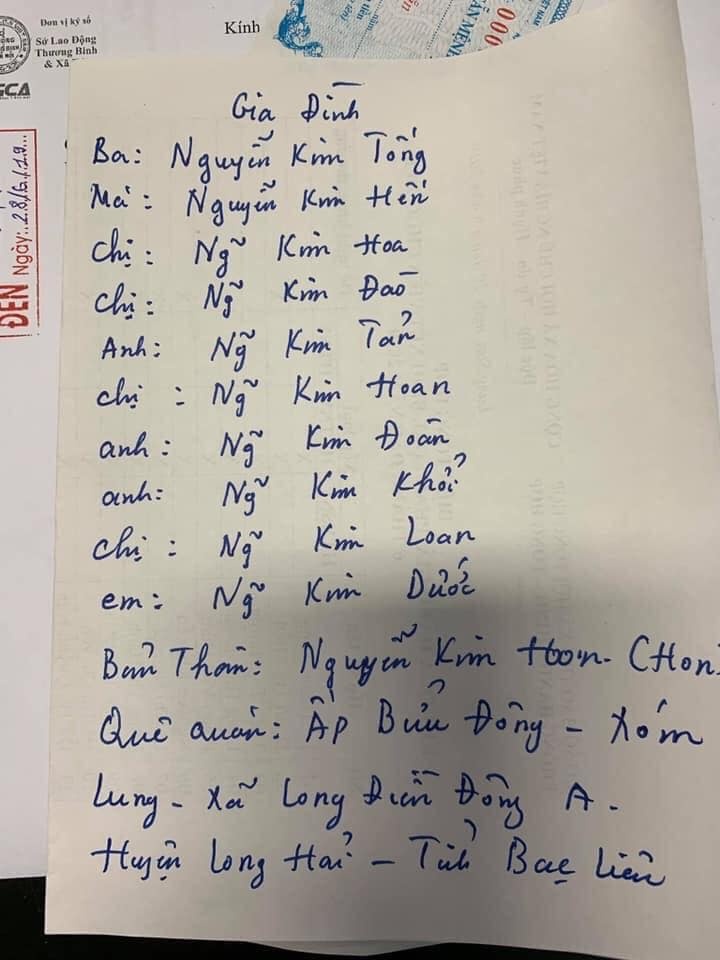 Đơn vị ký số
Sở Lao Động
Thương Binh
& Xã
Kính
000
ĐẾN
Ngày: 28/6/19
Gia Đình
Ba: Nguyễn Kim Tống
Má: Nguyễn Kim Hến
Chị: Ngũ Kim Hoa
chị: Ngũ Kim Đào
Anh: Ngũ Kim Tản
chị: Ngũ Kim Hoan
anh: Ngũ Kim Đoàn
anh: Ngũ Kim Khởi
chị: Ngũ Kim Loan
em: Ngũ Kim Dước
Bản Thân: Nguyễn Kim Hơn- (Hon
Quê quán: Ấp Bửu Đông - Xóm
Lung - xã Long Điền Đông A -
Huyện Long Hải - Tỉnh Bạc Liêu